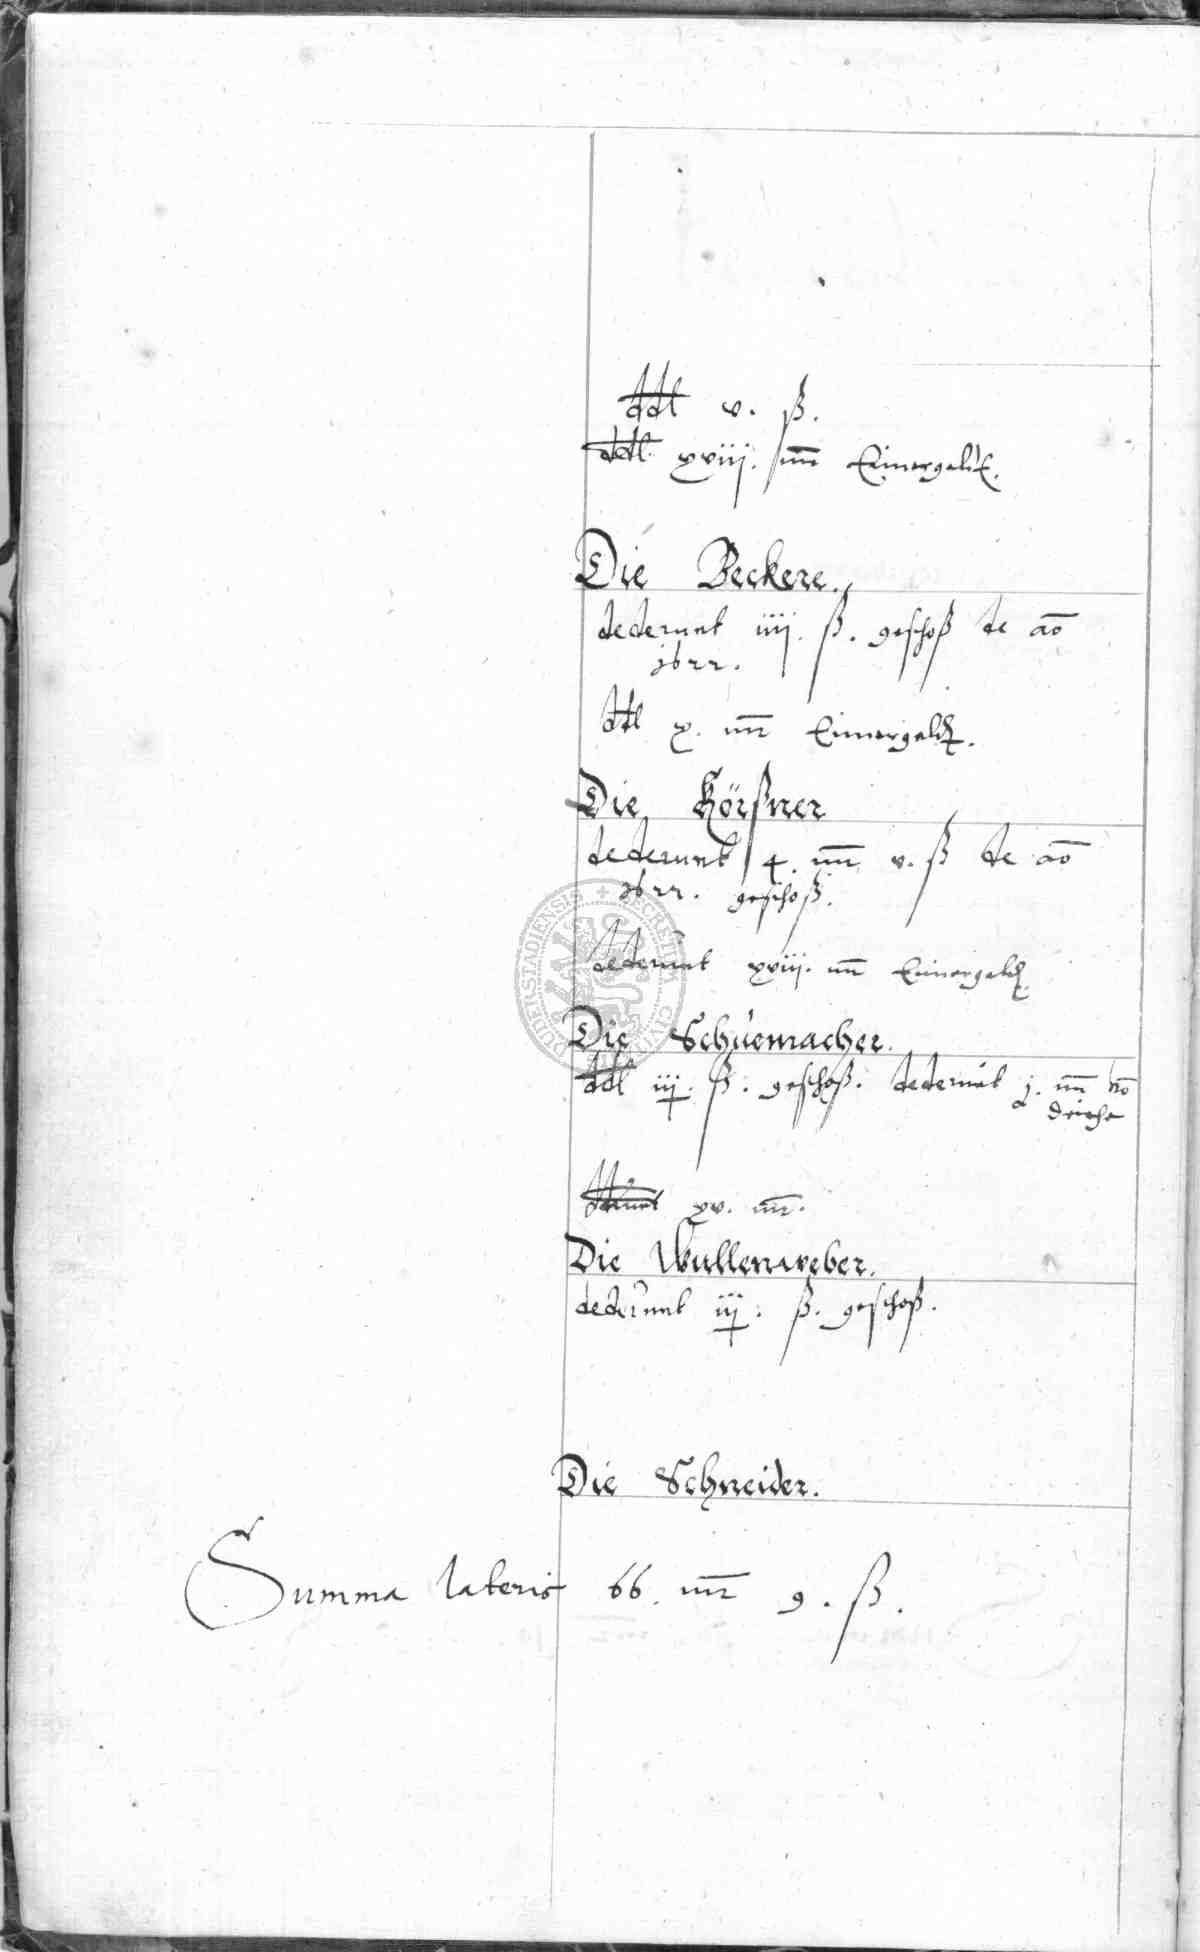 ddt v. ß.
ddt xviij. mr Einnergeldt.
Die Beckere.
dederunt iiij. ß. geschoß de ao
1622.
ddt x. mr Einnergeldt.
Die Körßner
dederunt 4. mr v. ß de ao
1622. geschoß.
dederunt xviij. mr Einnergeldt
Die Schuemacher.
ddt iij. ß. geschoß. dederunt j. mr
dederunt xv. mr.
Die Wullenweber.
dederunt iij. ß. geschoß.
Die Schneider.
Summa lateris 66. mr 9. ß.
DUDERSTADIENSIS + SECRETUM CIVITATIS